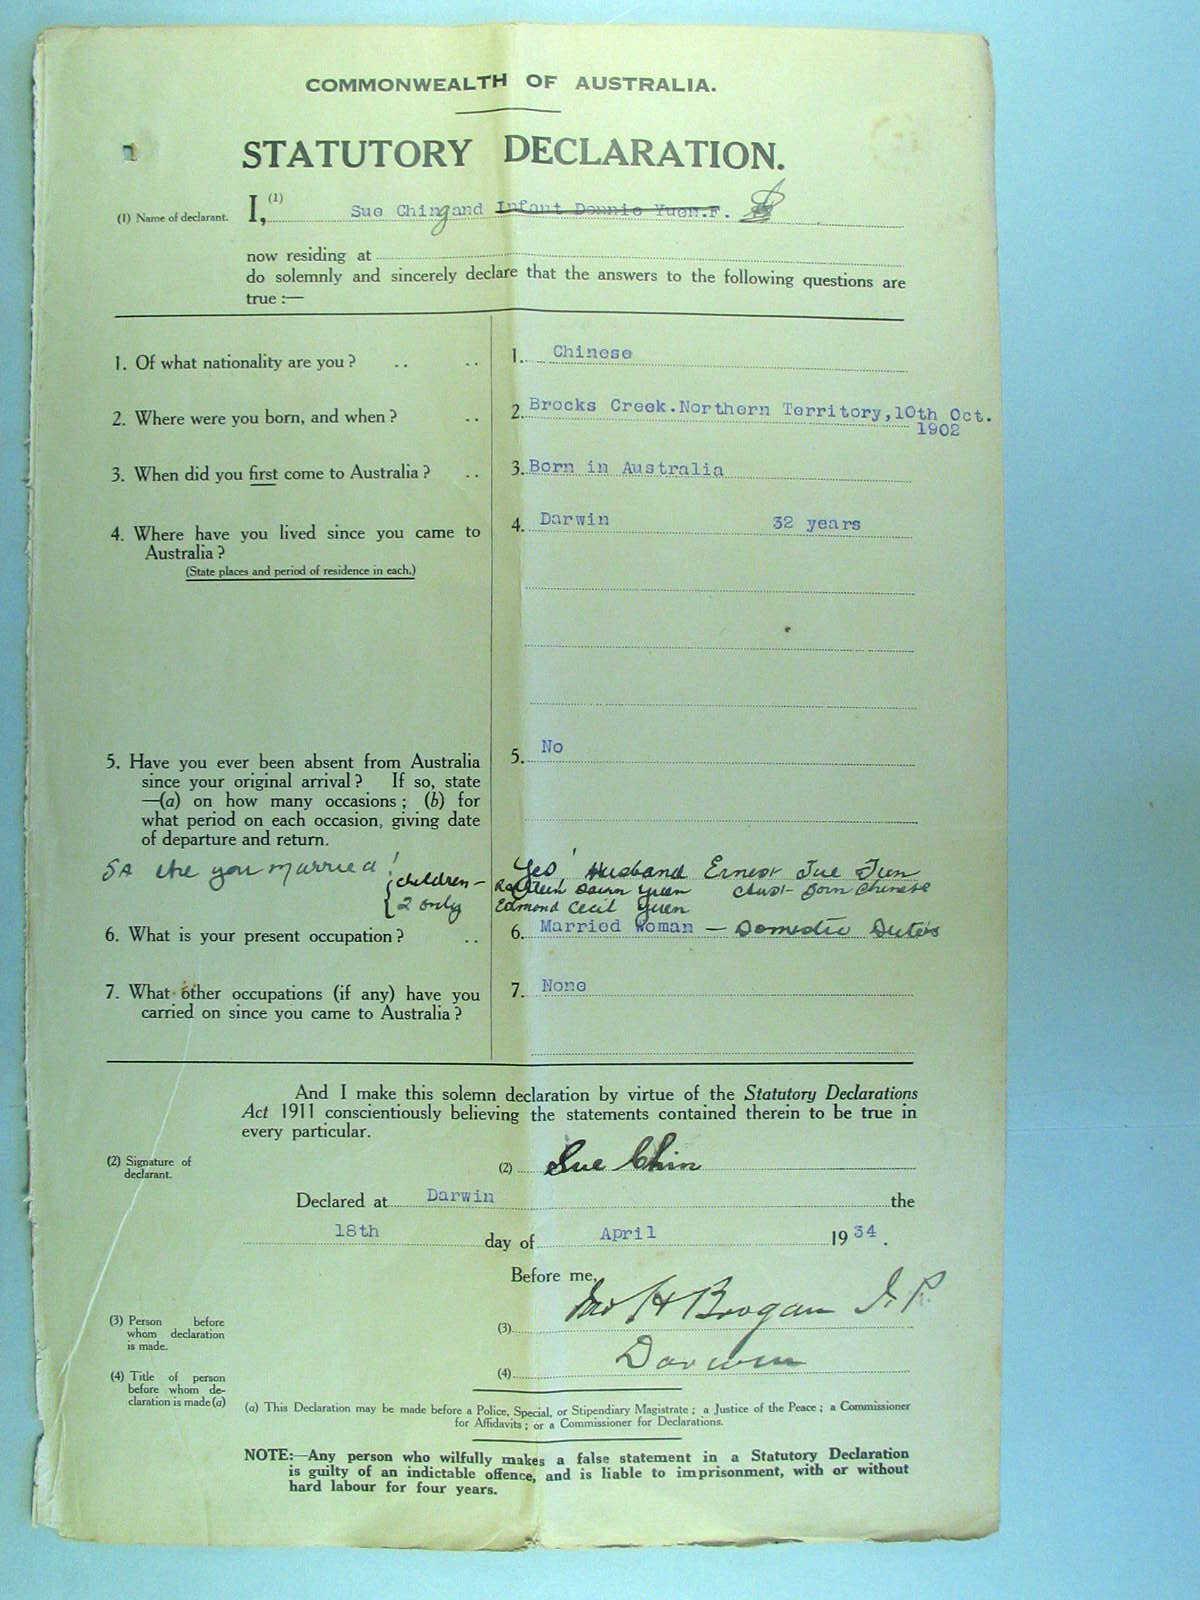 COMMONWEALTH OF AUSTRALIA.
STATUTORY DECLARATION.
(1) Name of declarant. I, (1) Sue Ching and Infant Donnie Yuen.F.
now residing at
do solemnly and sincerely declare that the answers to the following questions are
true :—
1. Of what nationality are you ? .. .. 1. Chinese
2. Where were you born, and when ? .. 2. Brocks Creek.Northern Territory,10th Oct.
1902
3. When did you first come to Australia ? .. 3. Born in Australia
4. Where have you lived since you came to 4. Darwin 32 years
Australia ?
(State places and period of residence in each.)
5. Have you ever been absent from Australia 5. No
since your original arrival ? If so, state
—(a) on how many occasions ; (b) for
what period on each occasion, giving date
of departure and return.
5A Are you Married ! Yes! Husband Ernest
{children – Yuen Aust- Born Chinese
2 only Edmond Cecil Yuen
6. What is your present occupation ? .. 6. Married Woman — Domestic Duties
7. What other occupations (if any) have you 7. None
carried on since you came to Australia ?
And I make this solemn declaration by virtue of the Statutory Declarations
Act 1911 conscientiously believing the statements contained therein to be true in
every particular.
(2) Signature of
declarant.
(2) Sue Chin
Declared at Darwin the
18th day of April 1934.
Before me,
(3) Person before
whom declaration
is made.
(3) H Brogan J.P.
(4) Title of person
before whom de-
claration is made (a)
(4) Darwin
(a) This Declaration may be made before a Police, Special, or Stipendiary Magistrate ; a Justice of the Peace ; a Commissioner
for Affidavits ; or a Commissioner for Declarations.
NOTE:—Any person who wilfully makes a false statement in a Statutory Declaration
is guilty of an indictable offence, and is liable to imprisonment, with or without
hard labour for four years.